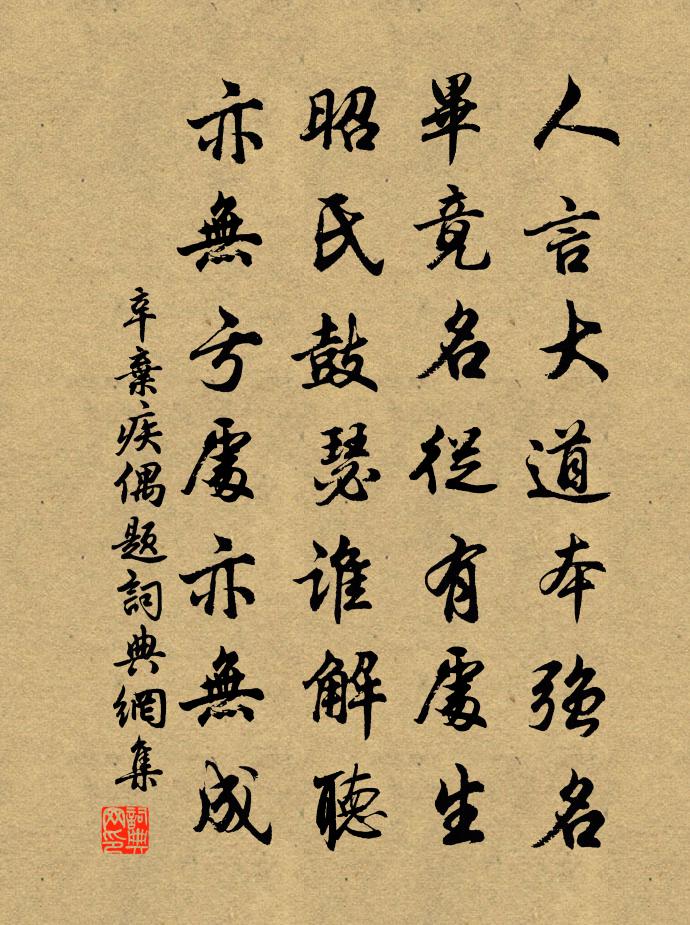 人言大道本強名
畢竟名從有處生
昭氏鼓瑟誰解聽
亦無亏處亦無成
辛棄疾偶題詞典網集
詞典網印